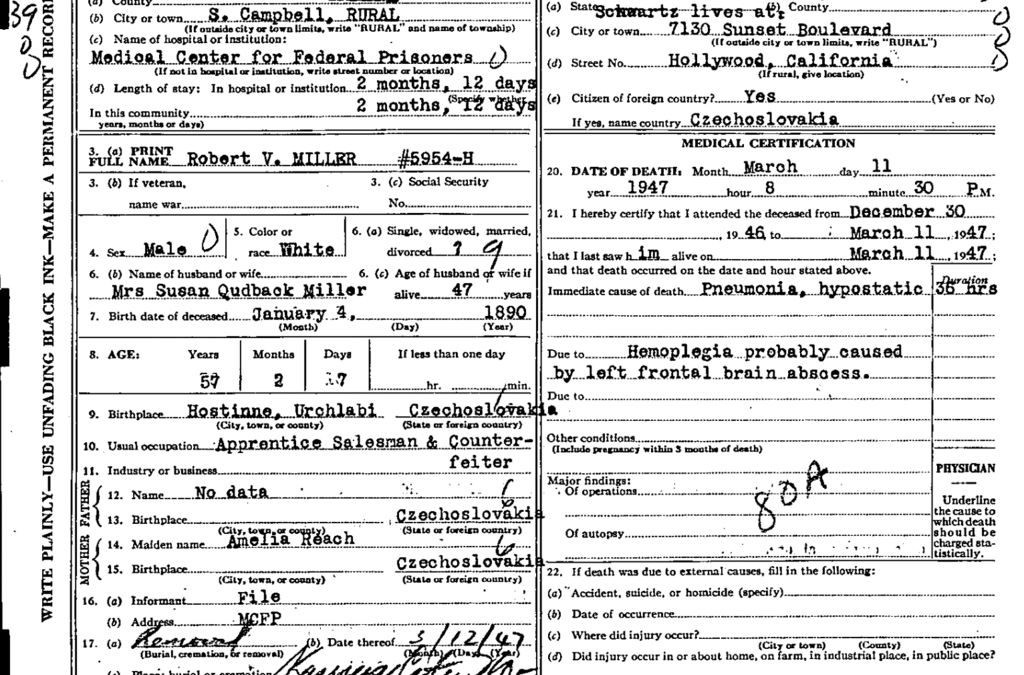 (a) County
(b) City or town S. Campbell, RURAL
(If outside city or town limits, write "RURAL" and name of township)
(c) Name of hospital or institution:
Medical Center for Federal Prisoners
(If not in hospital or institution, write street number or location)
(d) Length of stay: In hospital or institution 2 months, 12 days
(Specify whether
In this community 2 months, 12 days
years, months or days)
3. (a) PRINT
FULL NAME Robert V. MILLER #5954-H
3. (b) If veteran,
name war
3. (c) Social Security
No.
4. Sex Male
5. Color or
race White
6. (a) Single, widowed, married,
divorced ? 9
6. (b) Name of husband or wife
Mrs Susan Qudback Miller
6. (c) Age of husband or wife if
alive 47 years
7. Birth date of deceased January 4, 1890
(Month) (Day) (Year)
8. AGE: Years Months Days If less than one day
57 2 17 hr. min.
9. Birthplace Hostinne, Urchlabi Czechoslovakia
(City, town, or county) (State or foreign country)
10. Usual occupation Apprentice Salesman & Counter-
feiter
11. Industry or business
FATHER
12. Name No data
13. Birthplace Czechoslovakia
(City, town, or county) (State or foreign country)
MOTHER
14. Maiden name Amelia Reach
15. Birthplace Czechoslovakia
(City, town, or county) (State or foreign country)
16. (a) Informant File
(b) Address MCFP
17. (a) Removal (b) Date thereof 3/12/47
(Burial, cremation, or removal) (Month) (Day) (Year)
WRITE PLAINLY—USE UNFADING BLACK INK—MAKE A PERMANENT RECORD
39
(a) State Schwartz lives at: (b) County
(c) City or town 7130 Sunset Boulevard
(If outside city or town limits, write "RURAL")
(d) Street No. Hollywood, California
(If rural, give location)
(e) Citizen of foreign country? Yes (Yes or No)
If yes, name country Czechoslovakia
MEDICAL CERTIFICATION
20. DATE OF DEATH: Month March day 11
year 1947 hour 8 minute 30 P.M.
21. I hereby certify that I attended the deceased from December 30
, 19 46, to March 11, 1947;
that I last saw h im alive on March 11, 1947;
and that death occurred on the date and hour stated above.
Duration
Immediate cause of death Pneumonia, hypostatic 36 hrs
Due to Hemoplegia probably caused
by left frontal brain abscess.
Due to
Other conditions
(Include pregnancy within 3 months of death)
Major findings:
Of operations
80A
Of autopsy
PHYSICIAN
Underline
the cause to
which death
should be
charged sta-
tistically.
22. If death was due to external causes, fill in the following:
(a) Accident, suicide, or homicide (specify)
(b) Date of occurrence
(c) Where did injury occur?
(City or town) (County) (State)
(d) Did injury occur in or about home, on farm, in industrial place, in public place?